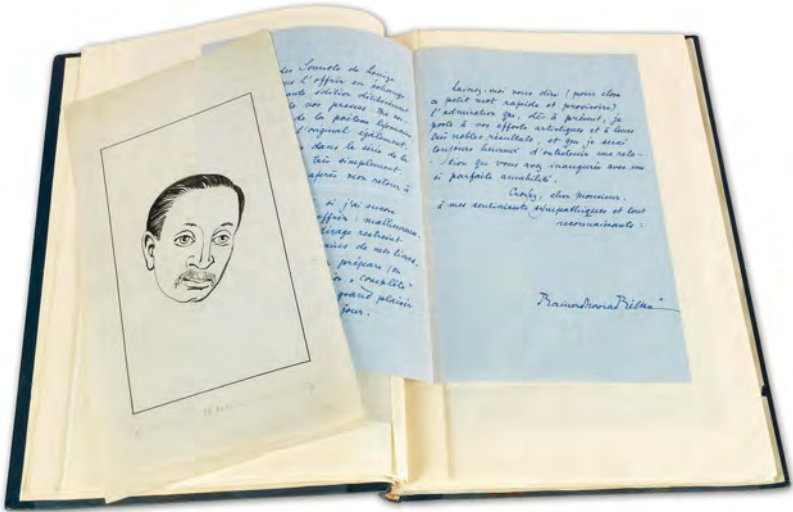 des Sonnets de Louize
l'offrir en échange
édition
de vos presses.
de la poétesse lyonnaise
l'original également,
dans la série de la
très simplement.
après mon retour à
si j'ai encore
offrir : malheureus.
tirage restreint
de nos livres,
prépare (en
complète"
grand plaisir
jour.
Laissez-moi vous dire (pour clore
ce petit mot rapide et provisoire)
l'admiration que, dès à présent, je
porte à vos efforts artistiques et à leurs
très nobles résultats, et que je serai
toujours heureux d'entretenir une rela-
tion que vous avez inaugurée avec une
si parfaite amabilité.
Croyez, cher Monsieur,
à mes sentiments sympathiques et tout
reconnaissants :
Rainer Maria Rilke